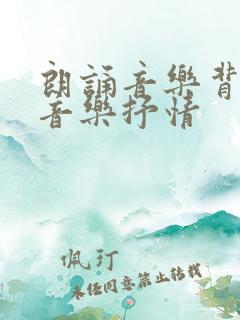 朗誦音樂背
音樂抒情
佩玎
未经同意禁止转载